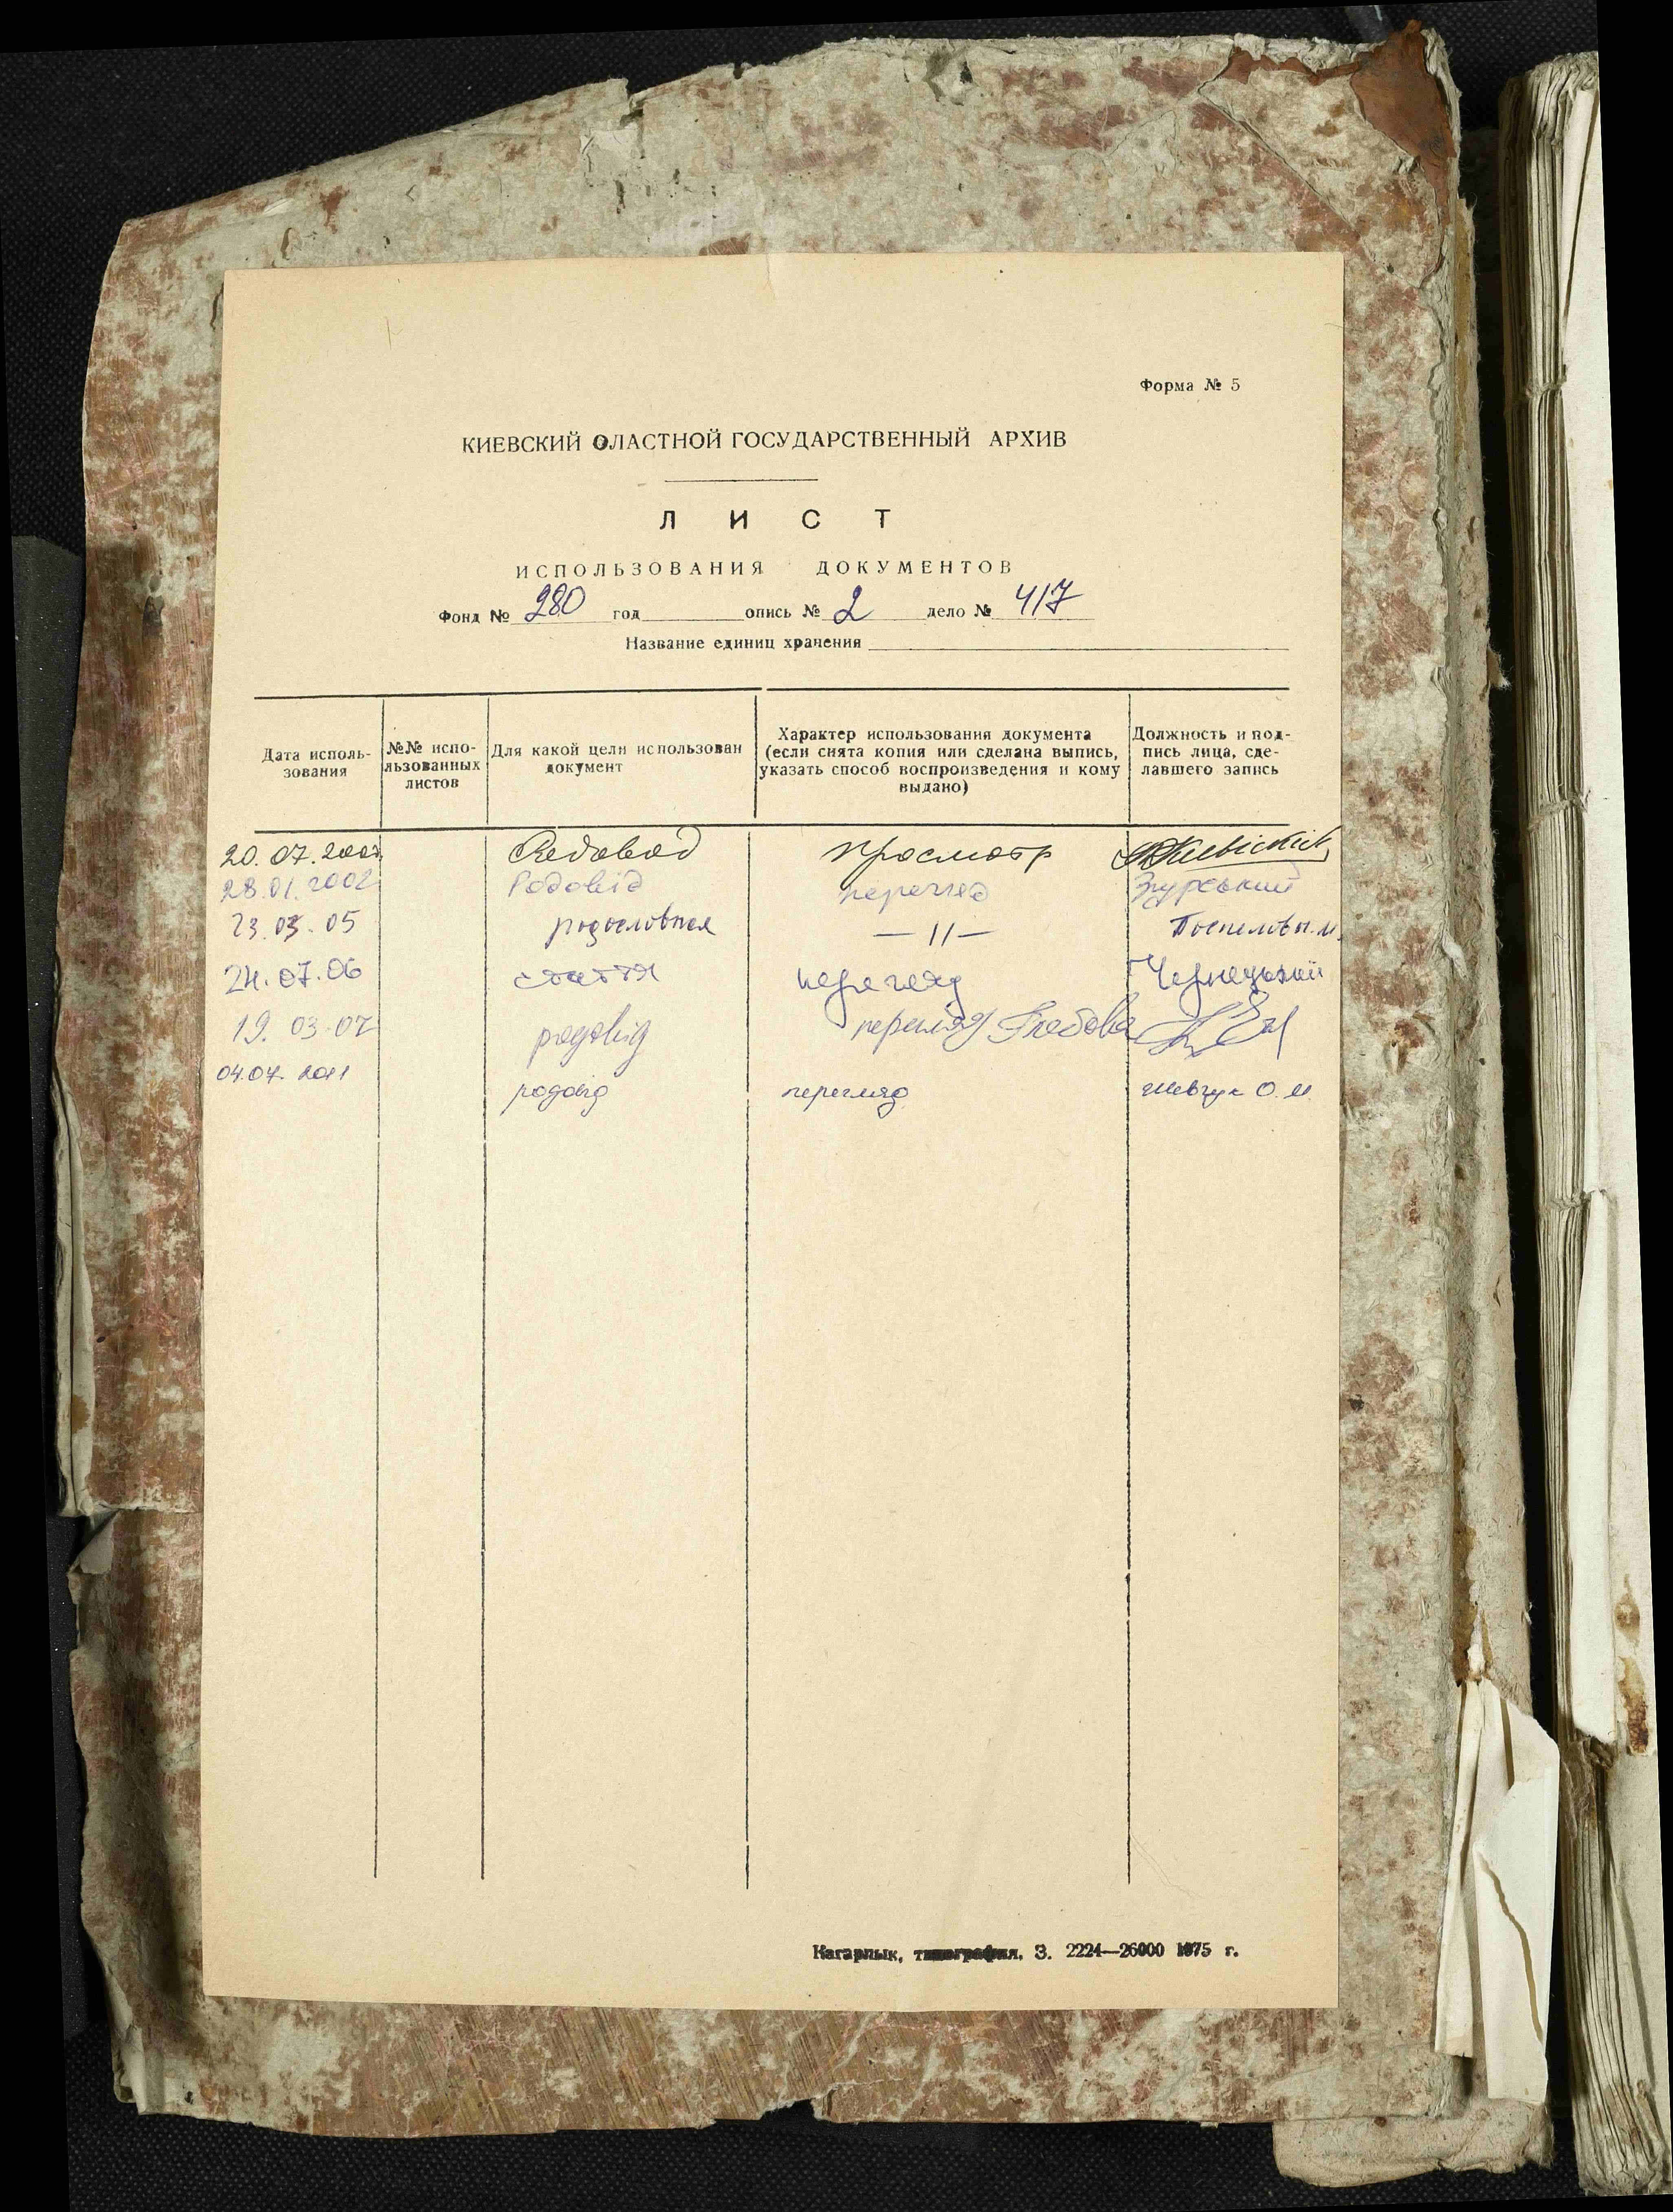 Форма № 5
КИЕВСКИЙ ОЛАСТНОЙ ГОСУДАРСТВЕННЫЙ АРХИВ
ЛИСТ
ИСПОЛЬЗОВАНИЯ ДОКУМЕНТОВ
Фонд № 280 год опись № 2 дело № 417
Название единиц хранения
Дата исполь-
зования
№№ испо-
льзованных
листов
Для какой цели использован
документ
Характер использования документа
(если снята копия или сделана выпись,
указать способ воспроизведения и кому
выдано)
Должность и под-
пись лица, сде-
лавшего запись
20.07. Родовод просмотр
28.01.2002 Родовід перегляд Згурський
23.03.05 родословная —||—
24.07.06 стаття перегляд Чернецький
19.03.07 родовід перегляд
04.07.2011
родовід перегляд Шевчук О.М.
Кагарлык, типография, З. 2224—26000 1975 г.